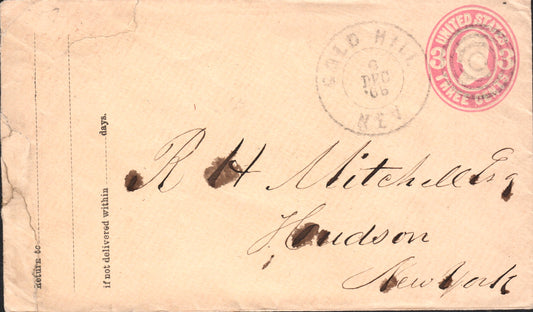 UNITED STATES
3 3
THREE CENTS
GOLD HILL
6
DEC
'66
NEV
R H Mitchell Esq
Hudson
New York
Return to
if not delivered within
days.